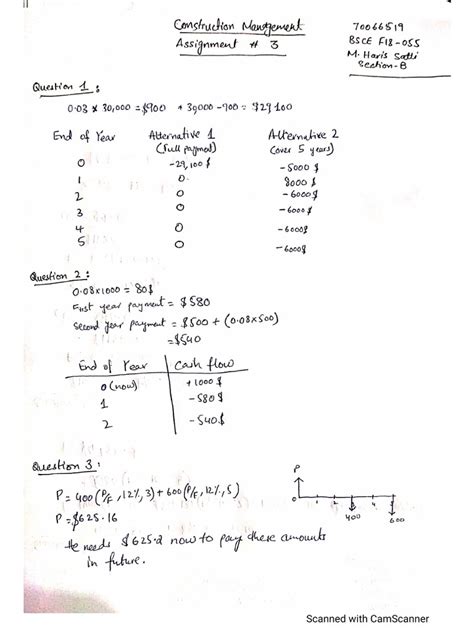 Construction Management
Assignment # 3
70066519
BSCE F18-055
M. Haris Satti
Section-B
Question 1:
0.03 × 30,000 = $900 + 30000 - 900 = $29100
End of Year Alternative 1 Alternative 2
(full payment) (over 5 years)
0 -29,100 $ -5000 $
1 0 8000 $
2 0 -6000 $
3 0 -6000 $
4 0 -6000 $
5 0 -6000 $
Question 2:
0.08×1000 = 80$
First year payment = $580
Second year payment = $500 + (0.08×500)
= $540
End of Year Cash flow
0 (now) +1000 $
1 -580 $
2 -540 $
Question 3:
P = 400 (P/F, 12%, 3) + 600 (P/F, 12%, 5)
P = $625.16
He needs $625.2 now to pay these amounts
in future.
P
0 1 2 4
400
600
Scanned with CamScanner